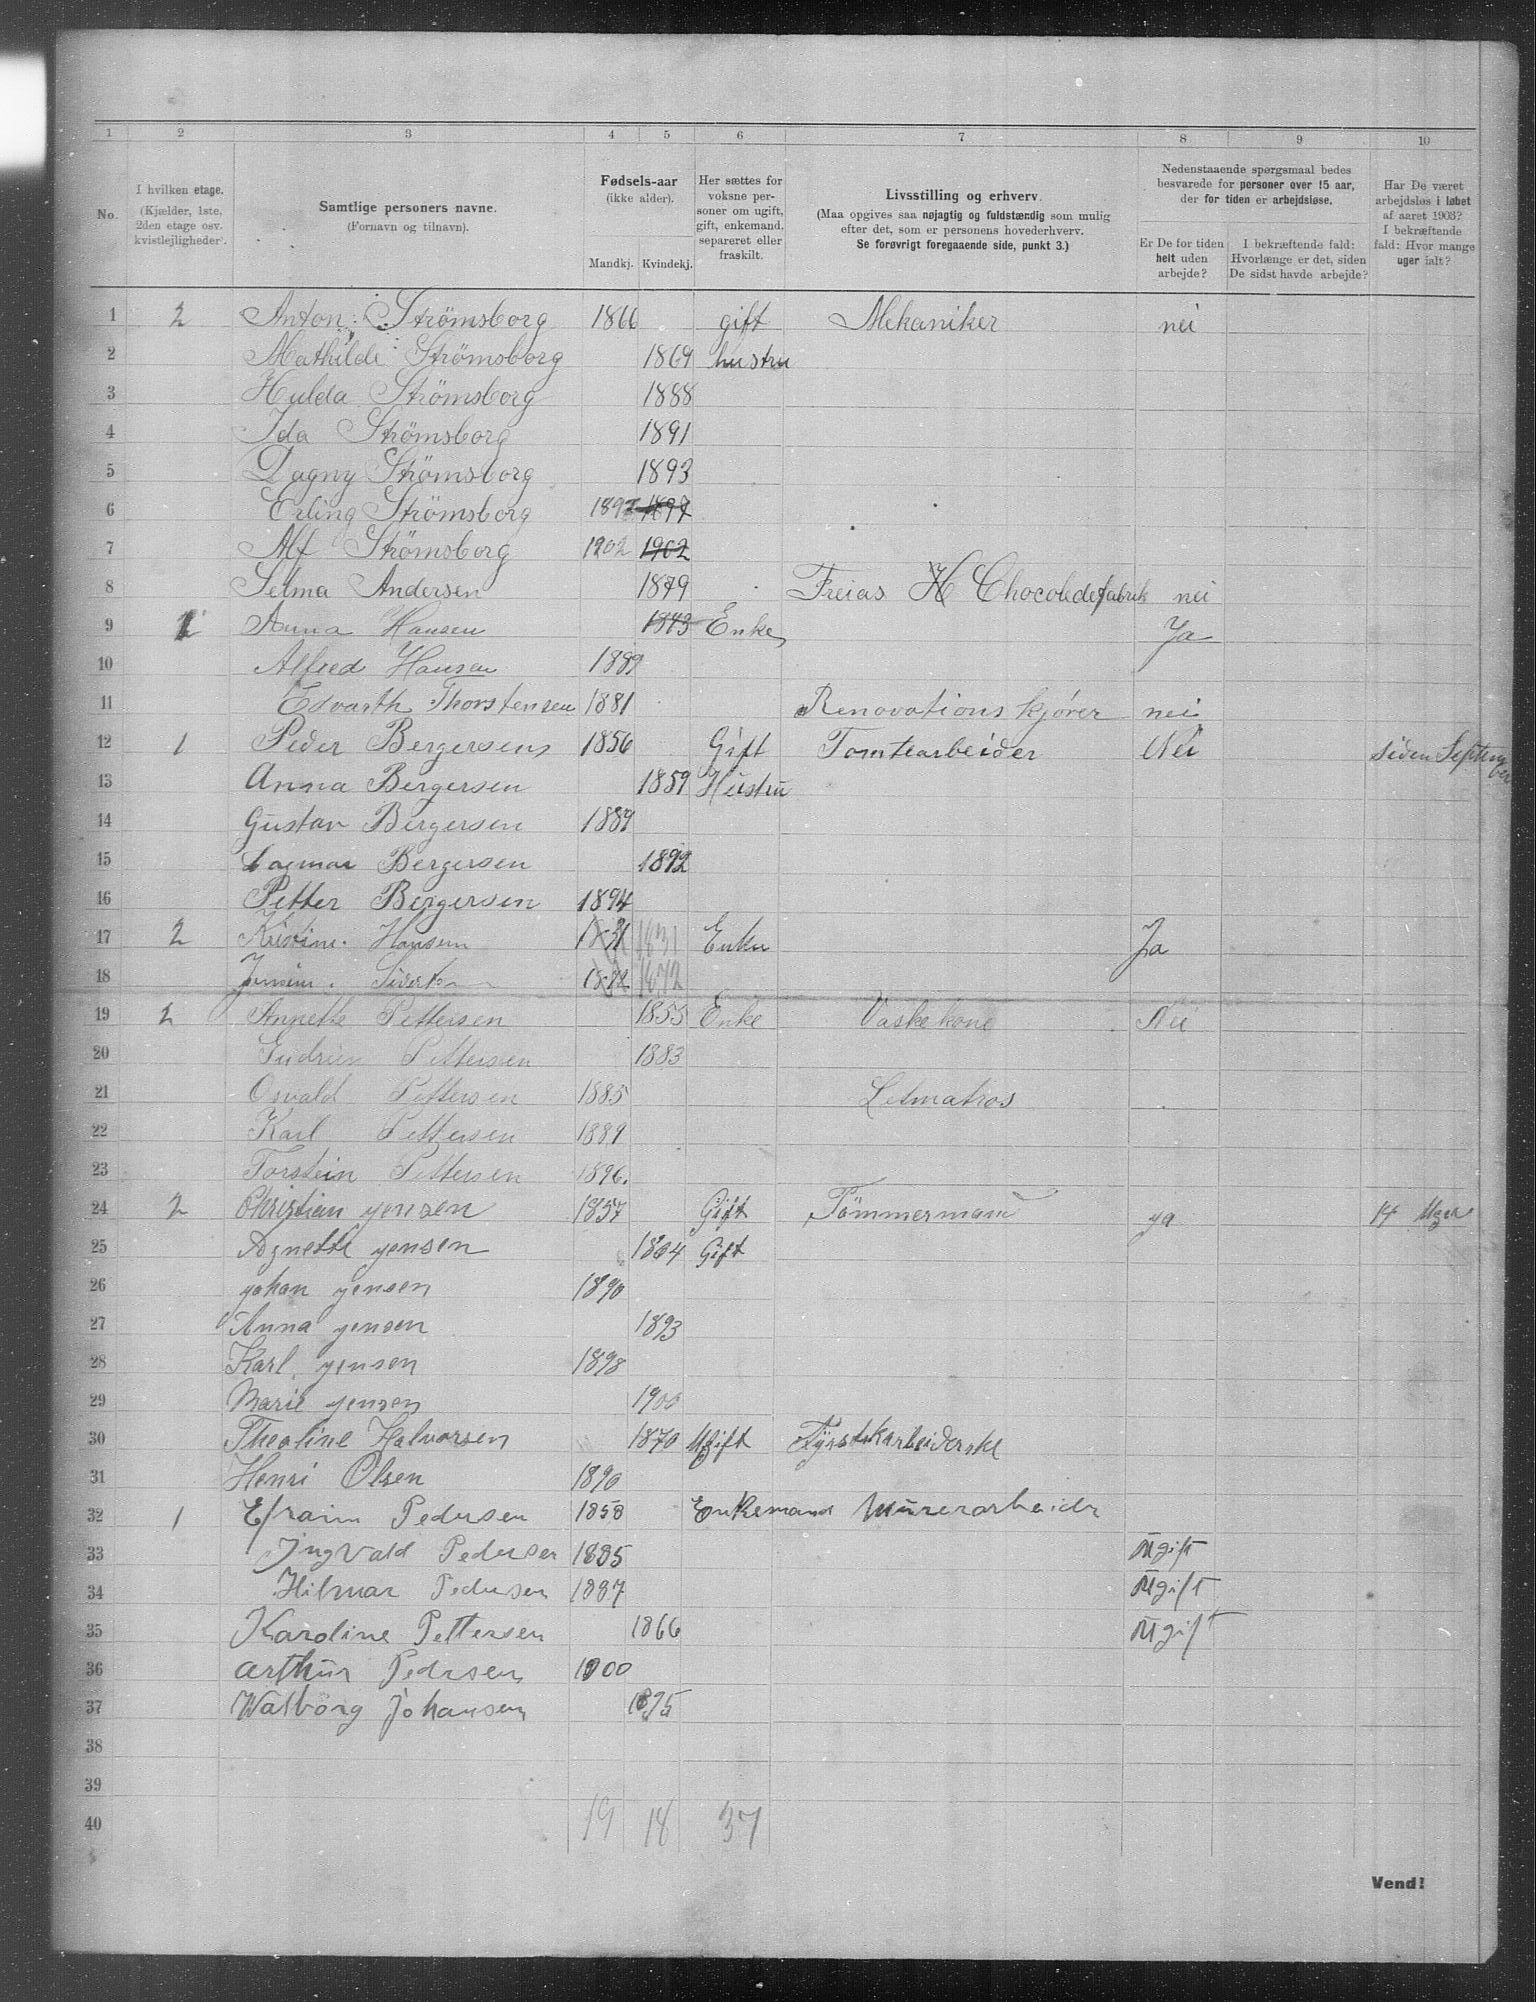 1 2 3 4 5 6 7 8 9 10
No.
I hvilken etage.
(Kjælder, 1ste, 2den etage osv. kvistlejligheder).
Samtlige personers navne.
(Fornavn og tilnavn).
Fødsels-aar
(ikke alder).
Mandkj. Kvindekj.
Her sættes for voksne personer om ugift, gift, enkemand, separeret eller fraskilt.
Livsstilling og erhverv.
(Maa opgives saa nøjagtig og fuldstændig som mulig efter det, som er personens hovederhverv.
Se forøvrigt foregaaende side, punkt 3.)
Nedenstaaende spørgsmaal bedes besvarede for personer over 15 aar, der for tiden er arbejdsløse.
Er De for tiden helt uden arbejde?
I bekræftende fald: Hvorlænge er det, siden De sidst havde arbejde?
Har De været arbejdsløs i løbet af aaret 1903? I bekræftende fald: Hvor mange uger ialt?
1 2 Anton Strömsborg 1866 gift Mekaniker nei
2 Mathilde Strömsborg 1869 hustru
3 Hulda Strömsborg 1888
4 Ida Strömsborg 1891
5 Dagny Strömsborg 1893
6 Erling Strömsborg 1897 1897
7 Alf Strömsborg 1902 1902
8 Selma Andersen 1879 Freias Chocoladefabrik nei
9 1 Anna Hansen 1873 Enke Ja
10 Alfred Hansen 1889
11 Edvarth Thorstensen 1881 Renovationskjører nei
12 1 Peder Bergersens 1856 Gift Tomtearbeider Nei siden September
13 Anna Bergersen 1859 Hustru
14 Gustav Bergersen 1889
15 Dagmar Bergersen 1892
16 Petter Bergersen 1894
17 2 Kristine Hansen 1831 1831 Enke Ja
18 1872 1872
19 2 Annette Pettersen 1855 Enke Vaskekone Nei
20 Pettersen 1883
21 Osvald Pettersen 1885 Letmatros
22 Karl Pettersen 1889
23 Torstein Pettersen 1896.
24 2 Christian yensen 1857 Gift Tömmermann ya 14 Uger
25 Agnette yensen 1864 Gift
26 yohan yensen 1890
27 Anna yensen 1893
28 Karl yensen 1898
29 Marie yensen 1900
30 Theoline Halvorsen 1870 Ugift Fyrstikarbeiderske
31 Henri Olsen 1890
32 1 Efraim Pedersen 1858 Enkemand Murerarbeidr
33 Ingvald Pedersen 1885 Ugift
34 Hilmar Pedersen 1887 Ugift
35 Karoline Pettersen 1866 Ugift
36 Arthur Pedersen 1900
37 Walborg Johansen 1895
38
39
40 19 18 37
Vend!